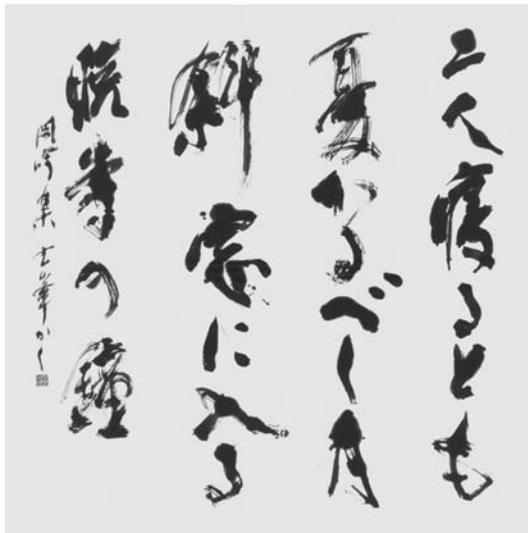 二人寝るとも
憂かるべし月
斜窓に入る
暁寺の鐘
閑吟集 かく